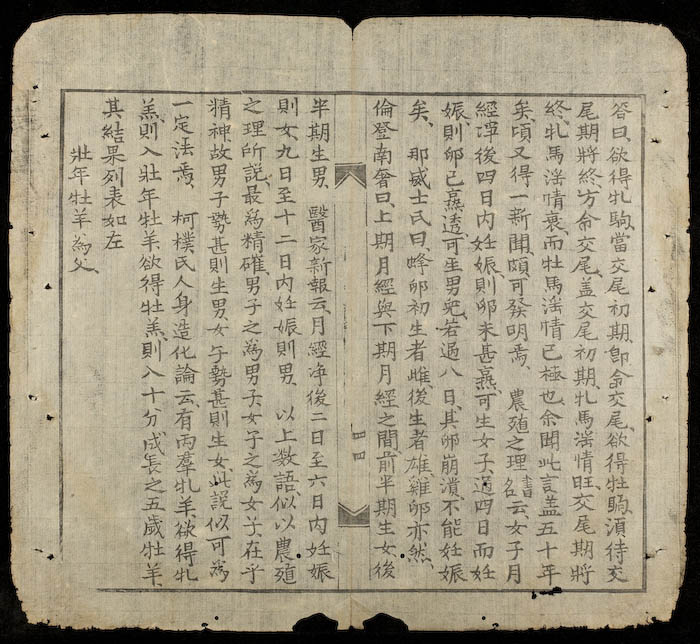 答曰、欲得牝駒、當交尾初期、卽命交尾、欲得牡駒、須待交
尾期將終、方命交尾、盖交尾初期、牝馬淫情旺、交尾期將
終、牝馬淫情衰、而牡馬淫情已極也、余聞此言、盖五十年
矣、頃又得一新聞、頗可發明焉、 農殖之理書名云、女子月
經淨後四日內妊娠、則卵未甚熟、可生女子、過四日而妊
娠、則卵已熟透、可生男兒、若過八日、其卵崩潰、不能妊娠
矣、 那威士氏曰、蜂卵初生者雌、後生者雄、雞卵亦然、
倫登南奢曰、上期月經與下期月經之間、前半期生女、後
四四
半期生男、 醫家新報云、月經淨後二日至六日內妊娠
則女、九日至十二日內妊娠則男、 以上数語、似以農殖
之理所說、最爲精確、男子之爲男子、女子之爲女子、在乎
精神、故男子勢甚則生男、女子勢甚則生女、此說似可爲
一定法焉、 柯樸氏人身造化論云、有兩羣牝羊、欲得牝
羔、則入壯年牡羊、欲得牡羔、則入十分成長之五歲牡羊、
其結果列表如左
壯年牡羊爲父、